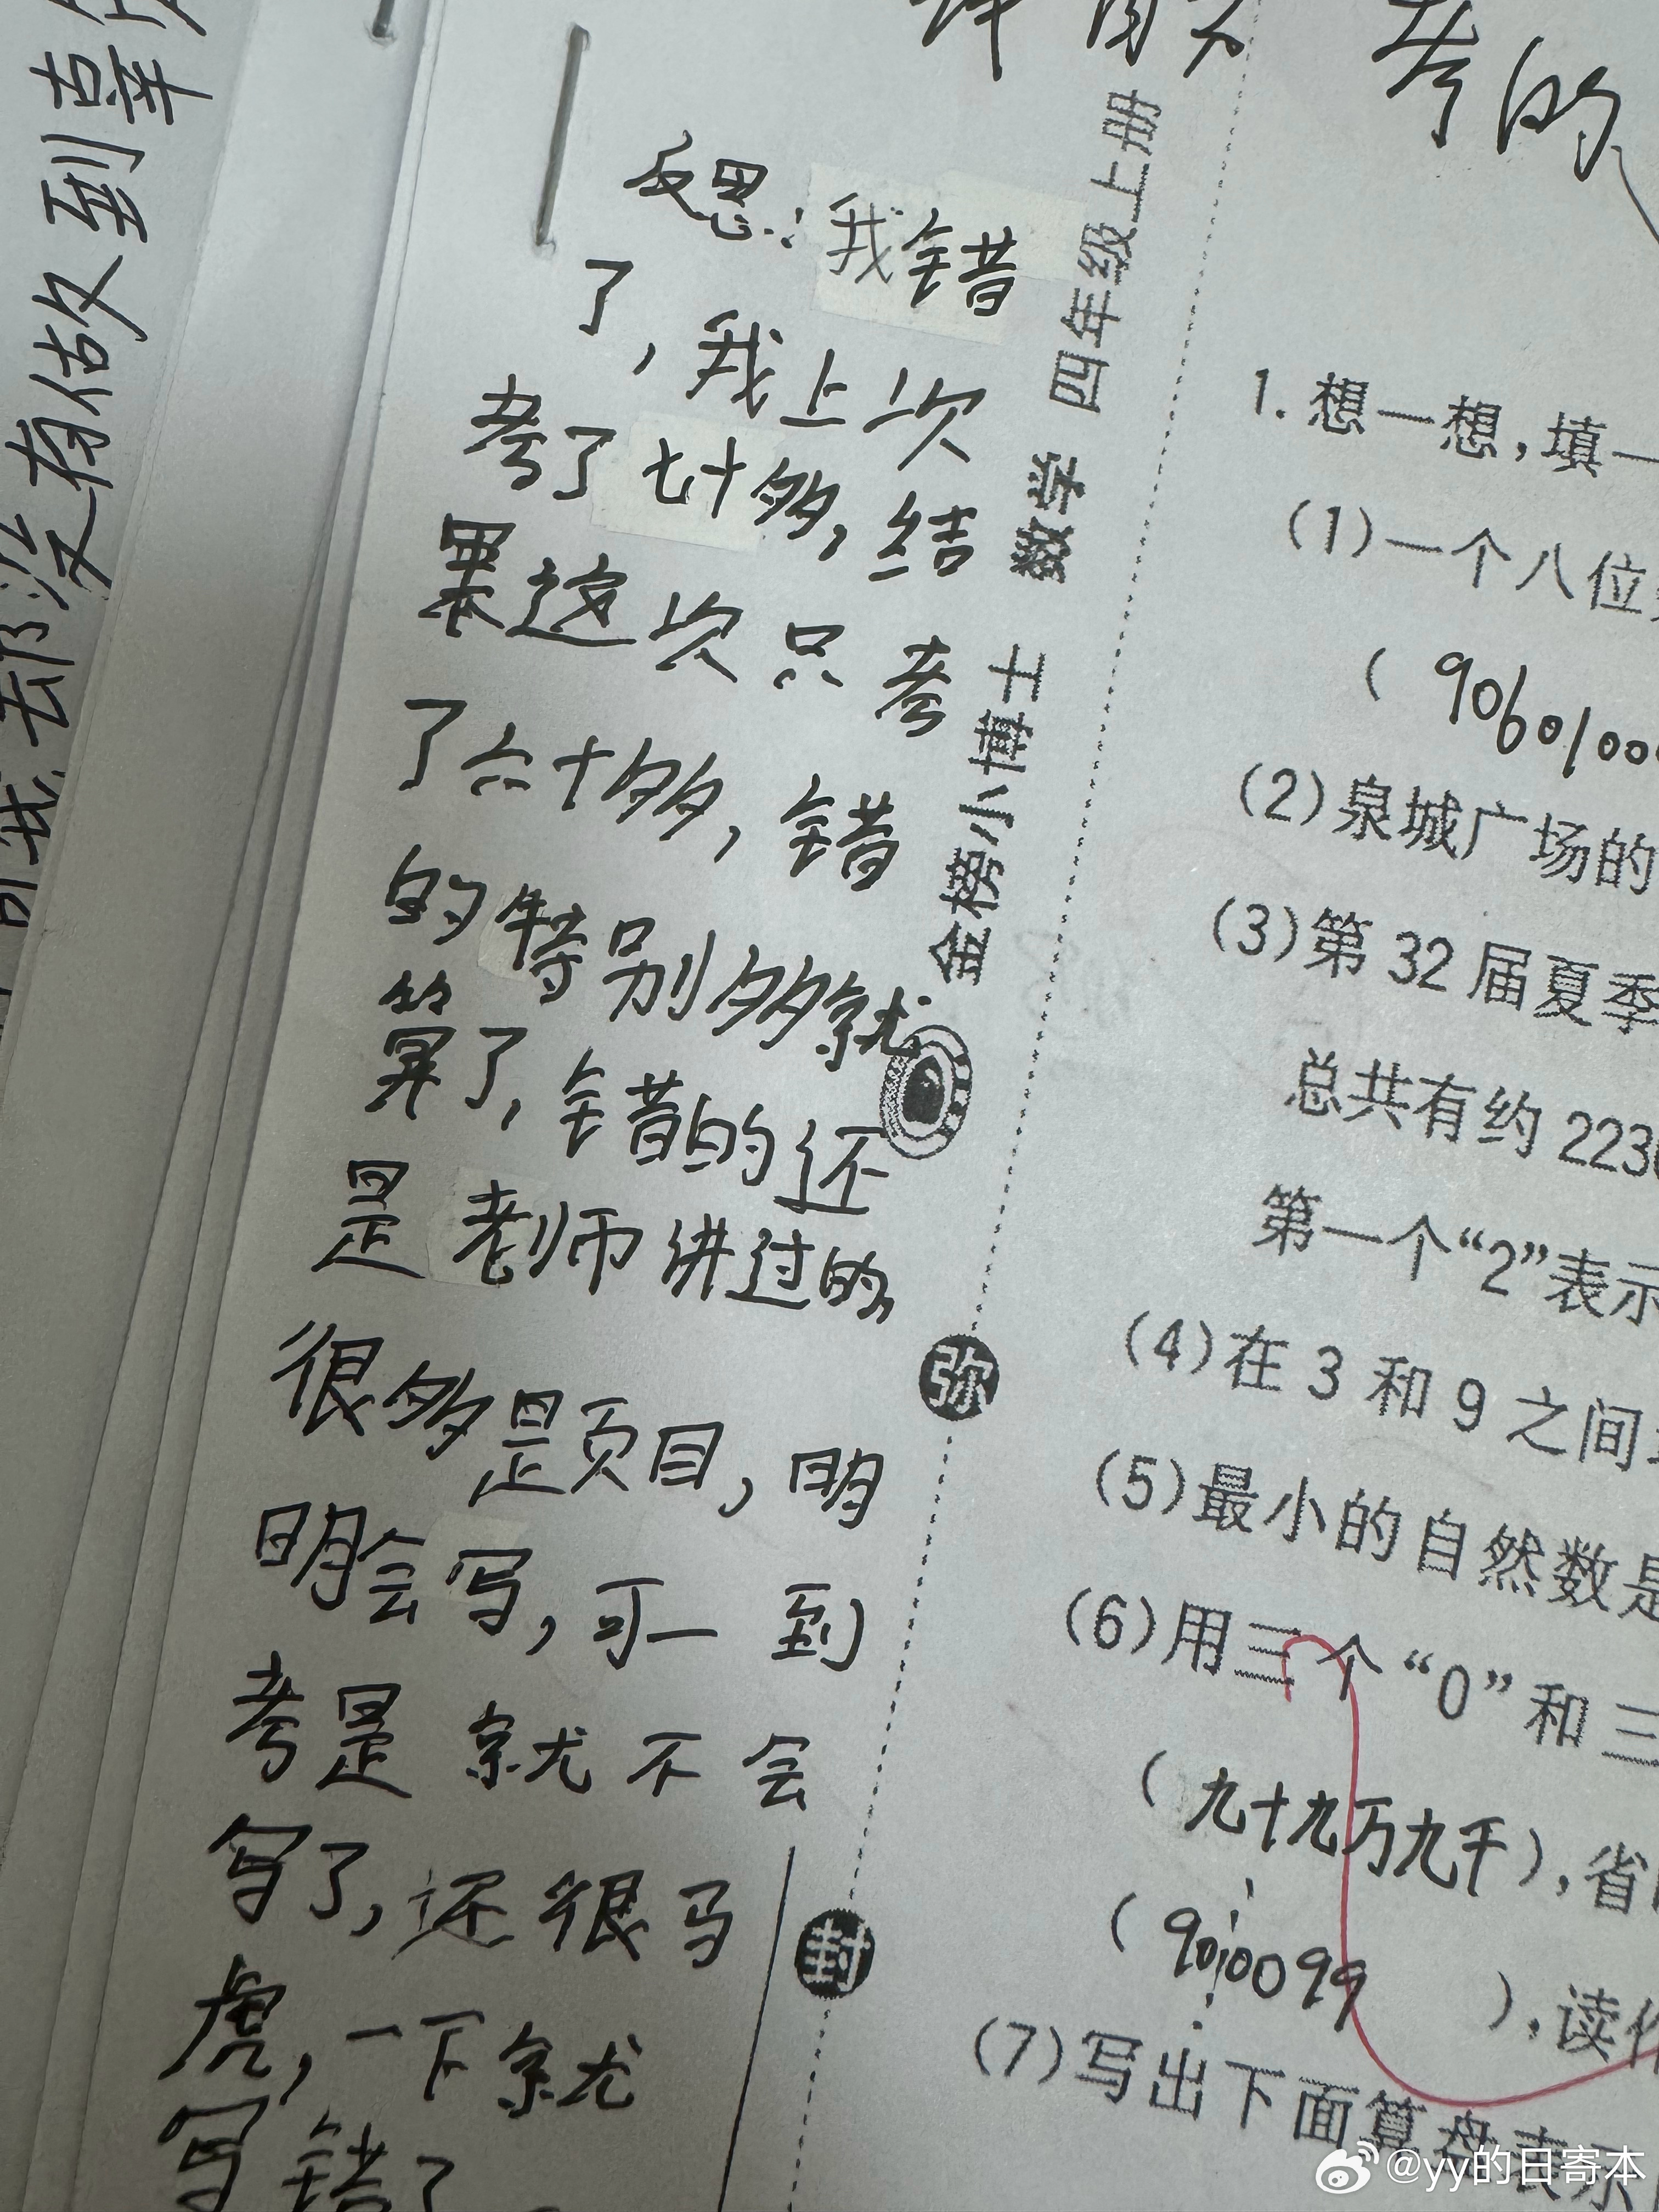 考的
反思:我错
了,我上次
考了七十多,结
果这次只考
了六十多,错
的特别多就
算了,错的还
是老师讲过的,
很多是页目,明
明会写,可一到
考是就不会
写了,还很马
虎,一下就
写错了
没有做
到
四年级上册
数学
金榜小博士
弥
封
1.想一想,填一
(1)一个八位
(9060100
(2)泉城广场的
(3)第32届夏季
总共有约223
第一个“2”表示
(4)在3和9之间
(5)最小的自然数是
(6)用三个“0”和三
(九十九万九千),省
(9010099),读作
(7)写出下面算盘表示
@yy的日寄本